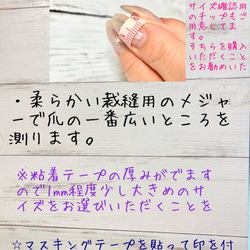 サイズ確認用
のチップもご
用意してま
す。
そちらを購入
いただくこと
をお勧めいた
・柔らかい裁縫用のメジャ
ーで爪の一番広いところを
測ります。
※粘着テープの厚みがでます
ので1mm程度少し大きめのサ
イズをお選びいただくことを
☆マスキングテープを貼って印を付